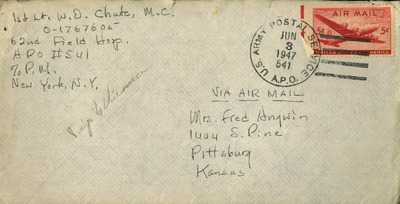 1st Lt. W. D. Chute, M.C.
O-1767605
62nd Field Hosp.
APO #541
% P.M.
New York, N.Y.
U.S. ARMY POSTAL SERVICE
JUN
3
1947
541
A.P.O.
AIR MAIL
5¢ 5¢
UNITED STATES OF AMERICA
VIA AIR MAIL
Mrs. Fred Angwin
1404 S. Pine
Pittsburg
Kansas
Trip to